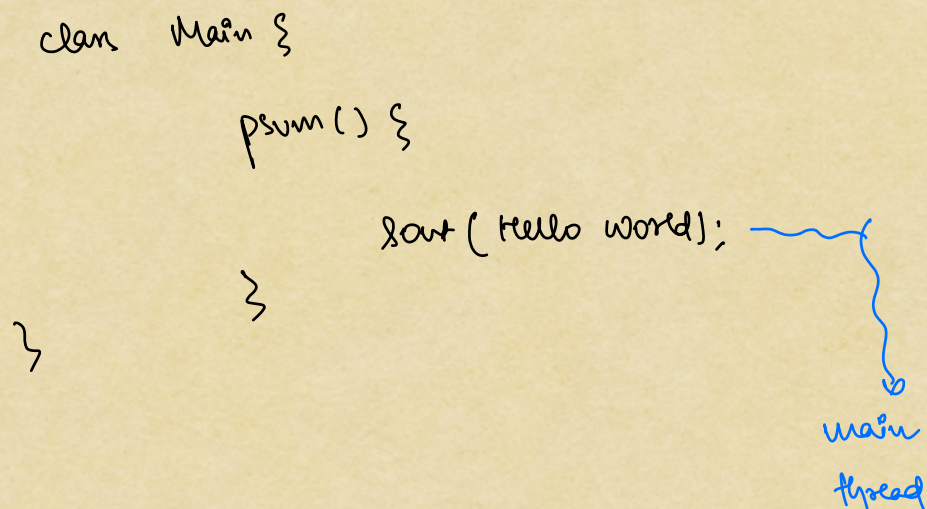 class Main {
psvm() {
sout( Hello world);
}
}
main
thread